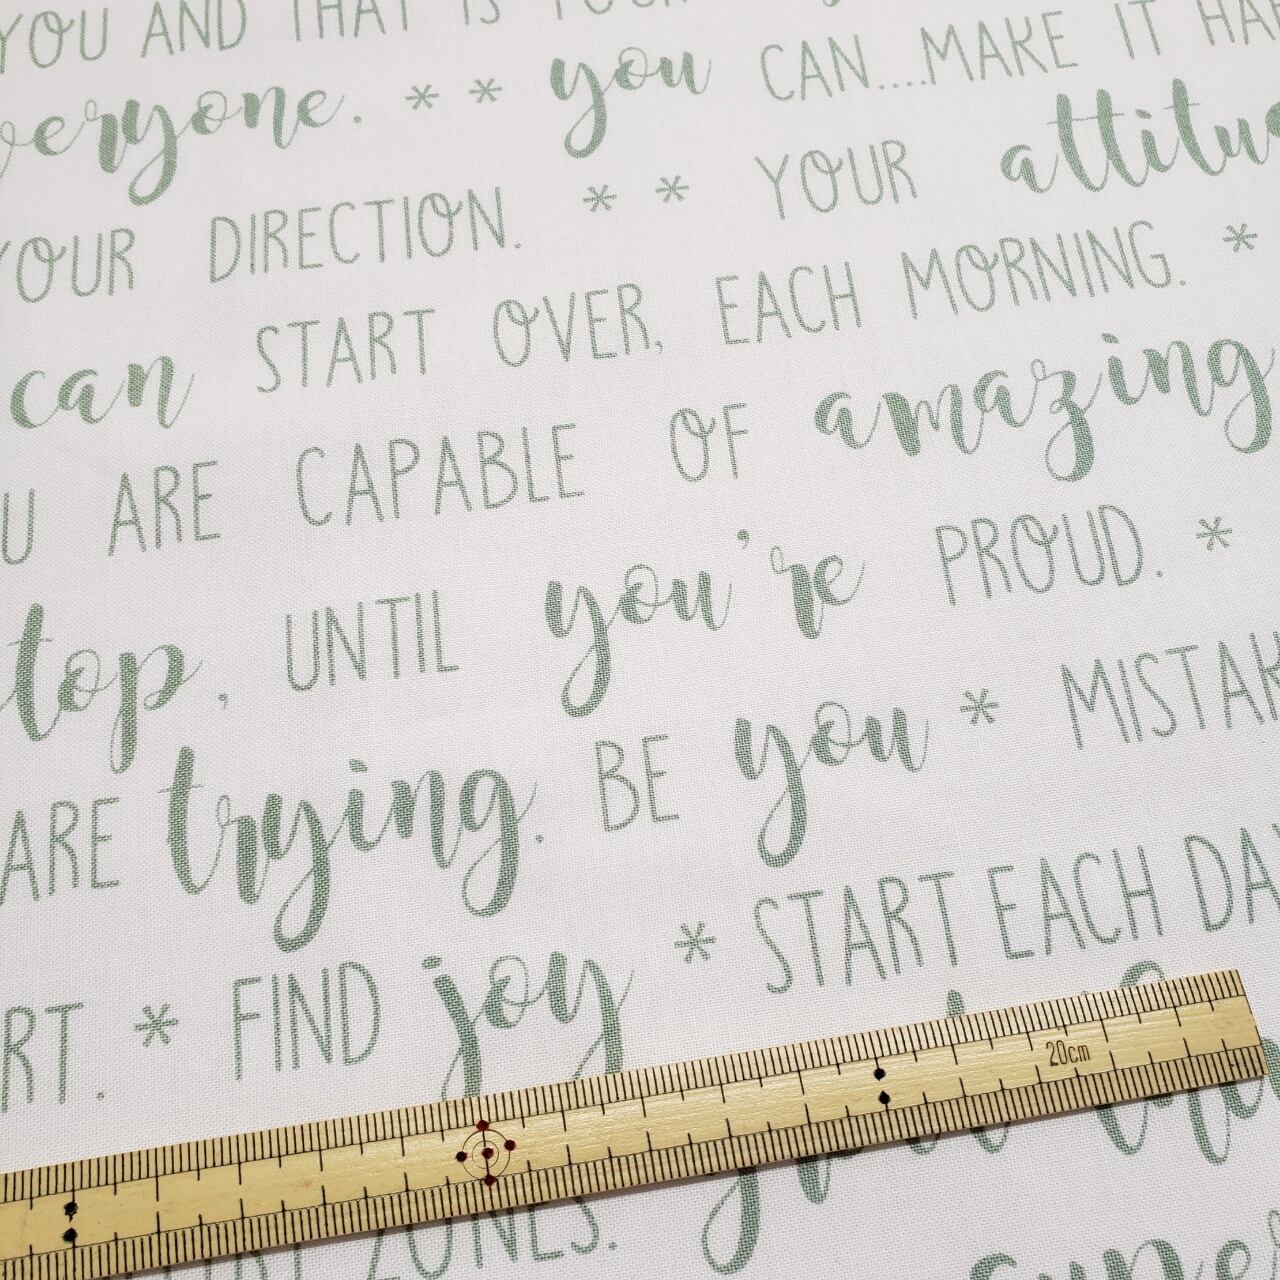 YOU AND THAT IS YOUR
everyone. * * you CAN....MAKE IT HAP
YOUR DIRECTION. * * YOUR attitu
can START OVER, EACH MORNING. *
U ARE CAPABLE OF amazing
top, UNTIL you're PROUD. *
ARE trying. BE you * MISTAK
RT. * FIND joy * START EACH DAY
20cm
ZONES.